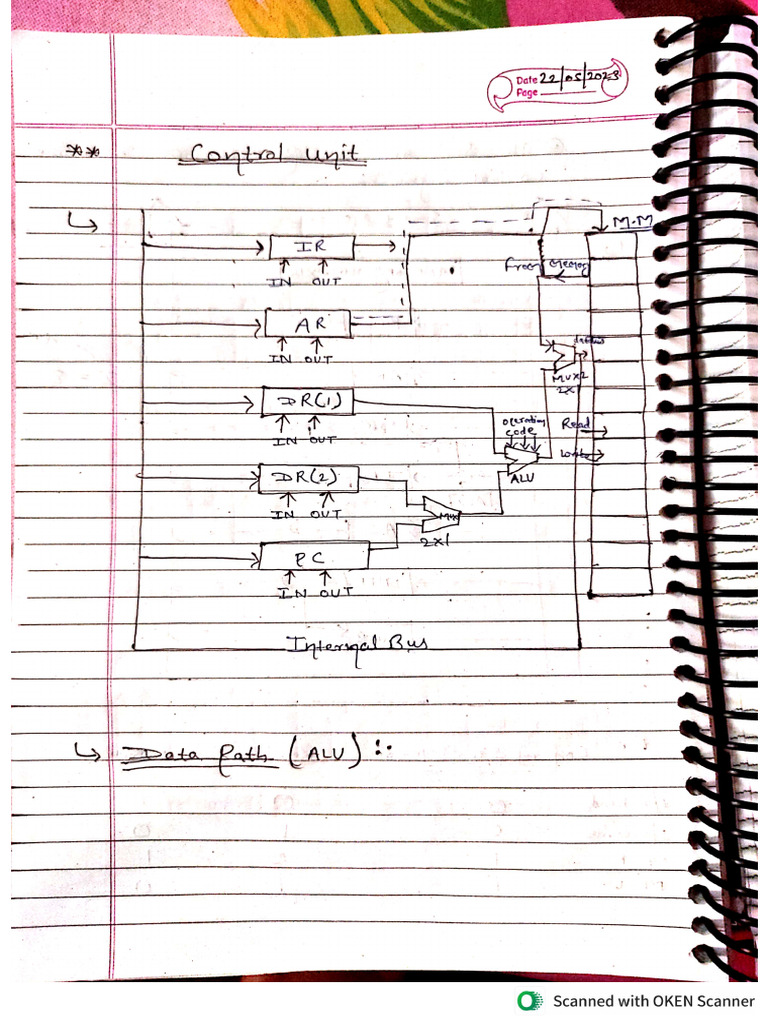 Date 22/05/2023
Page
** Control Unit
M.M
IR
IN OUT
From memory
AR
IN OUT
MUX2
2x1
DR(1)
IN OUT
Operating
code
Read
Write
ALU
DR(2)
IN OUT
MUX
2x1
PC
IN OUT
Internal Bus
Data Path (ALU) :-
Scanned with OKEN Scanner